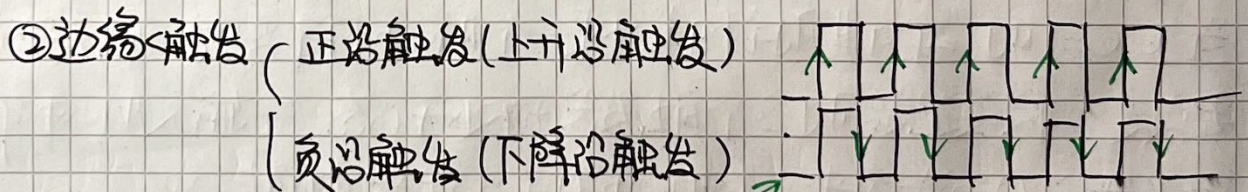 ②边缘触发 正沿触发(上升沿触发)
负沿触发(下降沿触发)